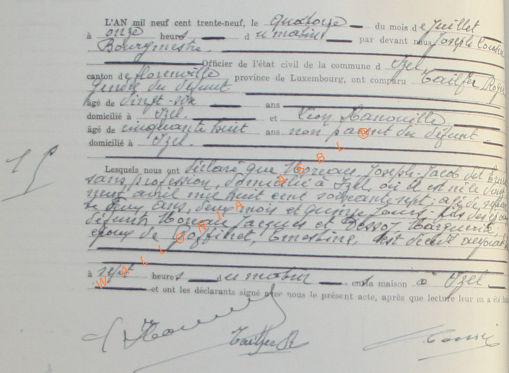 L'AN mil neuf cent trente-neuf, le quatorze du mois de Juillet
à onze heures du matin par devant nous Joseph
Bourgmestre.
Officier de l'état civil de la commune d'Izel
canton de Florenville province de Luxembourg, ont comparu
gendre du défunt
âgé de vingt-six ans
domicilié à Izel et Léon
âgé de cinquante huit ans non parent du défunt
domicilié à Izel.
15
Lesquels nous ont déclaré que Moreau, Joseph-Jacob
sans profession, domicilié à Izel, où il est né le
neuf avril mil huit cent soixante sept, âgé de
ans, deux mois et jours, fils des
défunts Moreau Jacques et Marguerite
époux de Ernestine, est décédé
à sept heures du matin en sa maison à Izel
et ont les déclarants signé avec nous le présent acte, après que lecture leur
WALLONIA ASBL